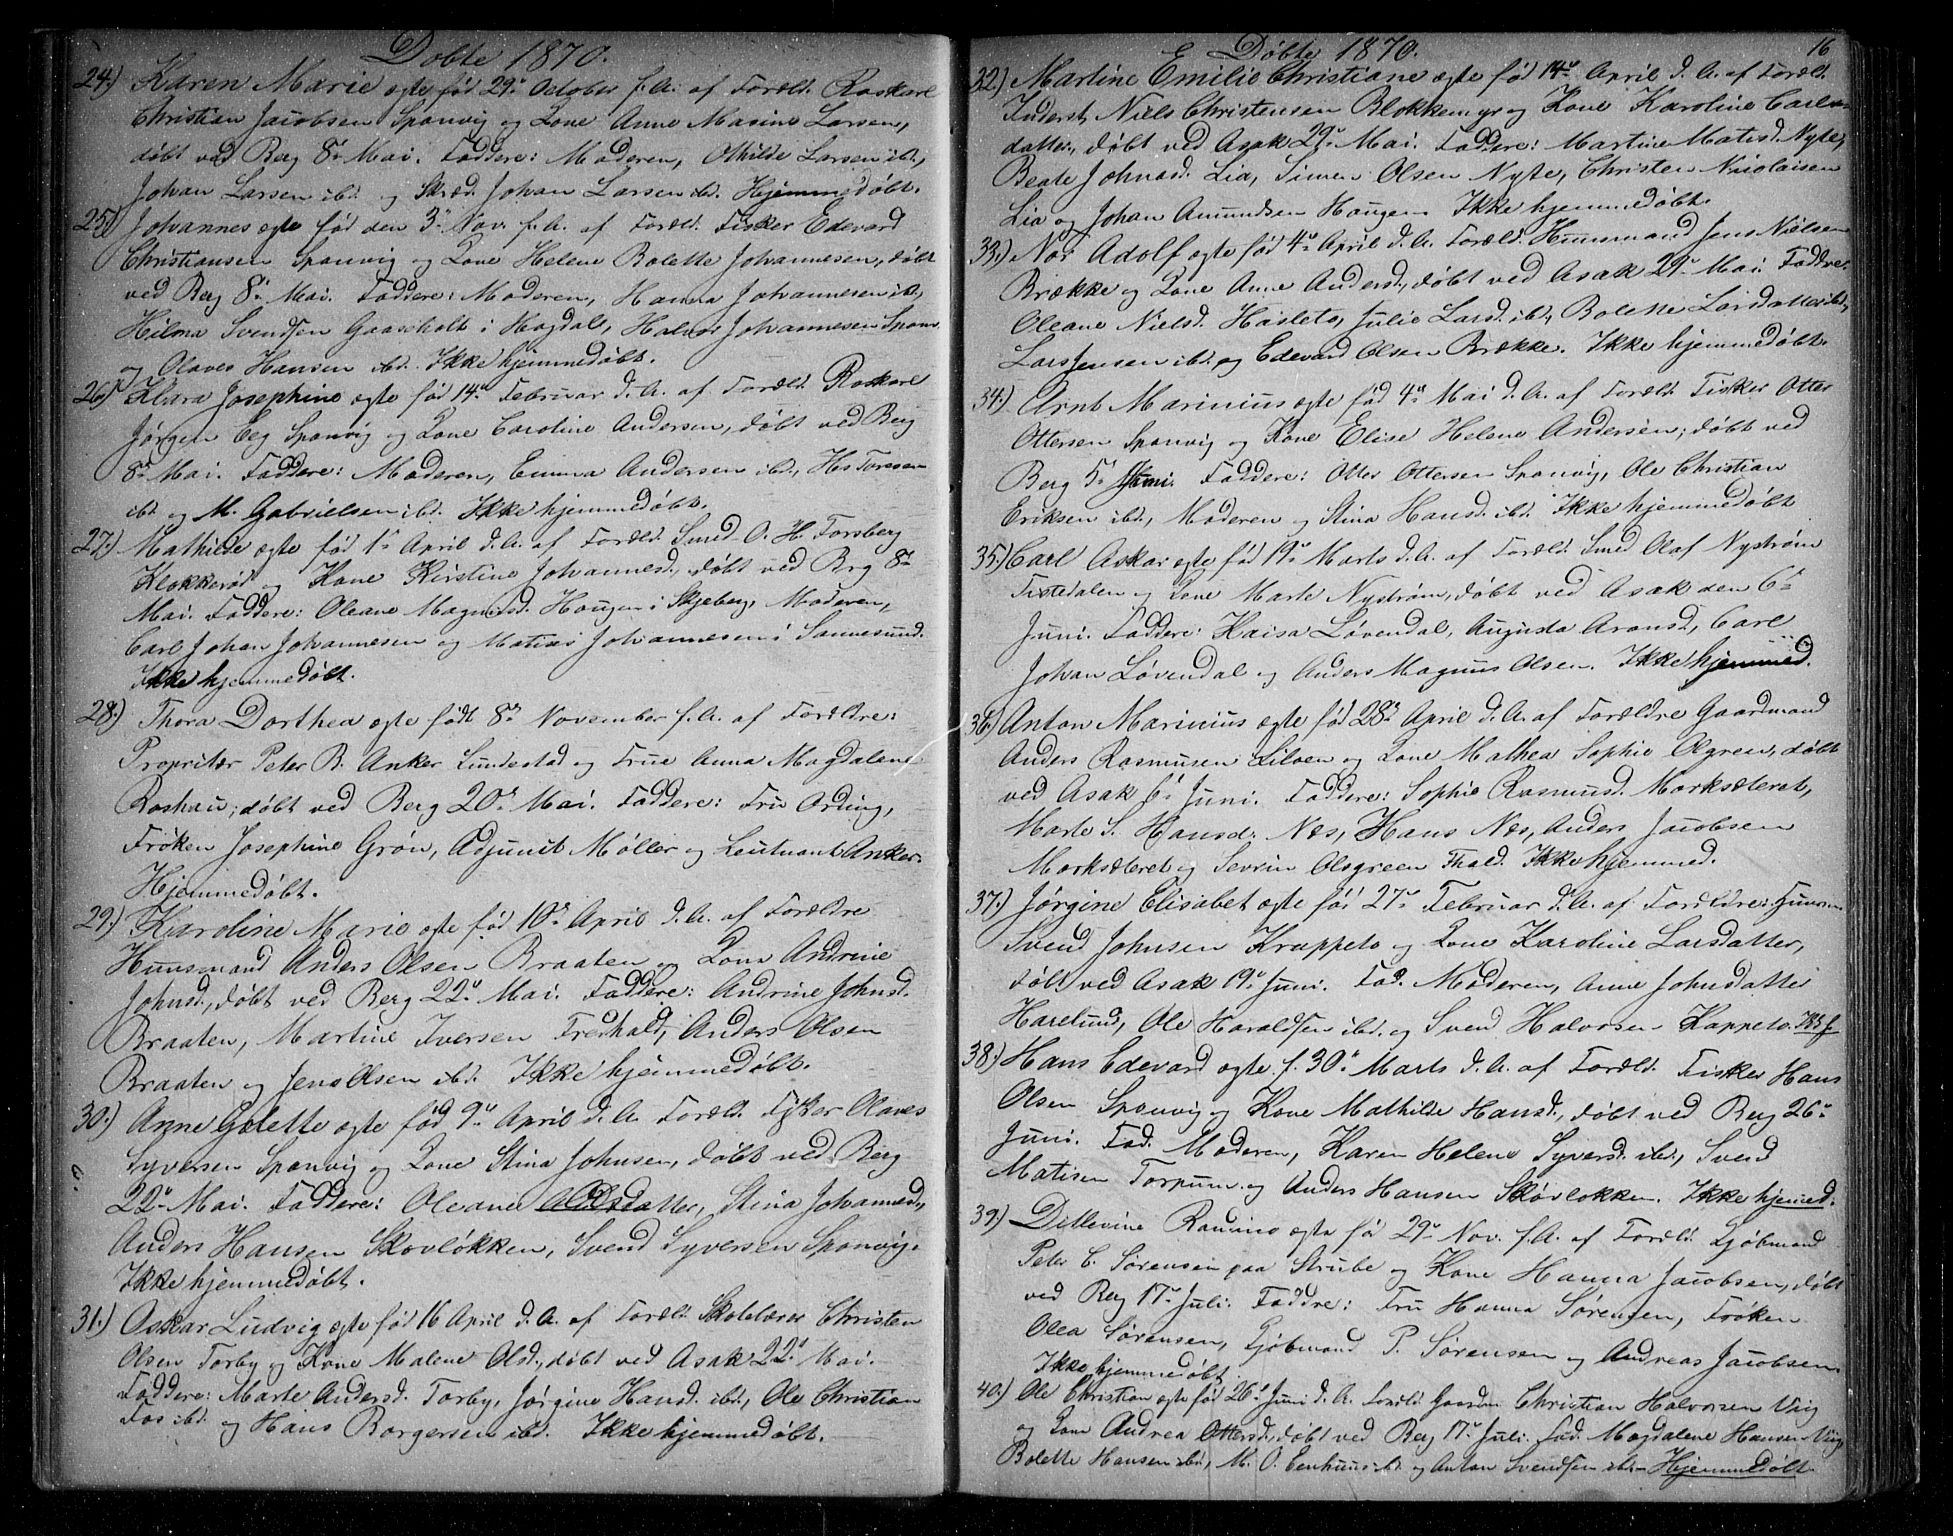 Døbte 1870.
24.) Karen Marie egte fød 29de October f. A. af Foræld. Roskarl
Christian Jacobsen Sponvig og Kone Anne Masine Larsen,
døbt ved Berg 8de Mai. Faddere: Moderen, Othilde Larsen ibd.,
Johan Larsen ibd. og Skræd. Johan Larsen ibd. Hjemmedøbt.
25.) Johannes egte fød den 3de Nov. f. A. af Foræld. Fisker Edevard
Christiansen Sponvig og Kone Helene Bolette Johannesen, døbt
ved Berg 8de Mai. Faddere: Moderen, Hanna Johannesen ibd.,
Hilma Svendsen Gaaseholt i Hogdal, Halvor Johannesen Sponv.
og Olaves Hansen ibd. Ikke hjemmedøbt.
26.) Klara Josephine egte fød 14de Februar d. A. af Foræld. Roskarl
Jørgen Eeg Sponvig og Kone Caroline Andersen, døbt ved Berg
8de Mai. Faddere: Moderen, Emma Andersen ibd., Hs Toresen
ibd. og M. Gabrielsen ibd. Ikke hjemmedøbt.
27.) Mathilde egte fød 1ste April d. A. af Foræld. Smed O. H. Forsberg
Klokkerød og Kone Kirstine Johannesd., døbt ved Brg 8de
Mai. Faddere: Oleane Magnusd. Hougen i Skjeberg, Moderen,
Carl Johan Johannesen og Matias Johannesen i Sannesund.
Ikke hjemmedøbt.
28.) Thora Dorthea egte født 8de November f. A. af Forældre:
Propritær Peter B. Anker Lundestad og Frue Anna Magdalene
Roshau; døbt ved Berg 20de Mai. Faddere: Fru Ording,
Frøken Josephine Grøn, Adjunct Møller og Leutnant Anker.
Hjemmedøbt.
29.) Karoline Marie egte fød 10de April d. A. af Forældre
Huusmand Anders Olsen Braaten og Kone Andrine
Johnsd., døbt ved Berg 22de Mai. Faddere: Andrine Johnsd.
Braaten, Martine Iversen Fredhald, Anders Olsen
Braaten og Jens Olsen ibd. Ikke hjemmedøbt.
30.) Anne Golette egte fød 9de April d. A. Foræld. Fisker Olaves
Syversen Sponvig og Kone Stina Johnsen, døbt ved Berg
22de Mai. Faddere: Oleane Olsdatter, Stina Johannesd.,
Anders Hansen Skovløkken, Svend Syversen Sponvig.
Ikke hjemmedøbt.
31.) Oskar Ludvig egte fød 16 April d. A. af Foræld. Skolelærer Christen
Olsen Torby og Kone Malene Olsd., døbt ved Asak 22de Mai.
Faddere: Marte Andersd. Torby, Jørgine Hansd. ibd., Ole Christian
Fos ibd. og Hans Borgersen ibd. Ikke hjemmedøbt.
Døbte 1870.
16
32.) Martine Emilie Christiane egte fød 14de April d. A. af Foræld.
Inderst Niels Christensen Blokkemyr og Kone Karoline Carls-
datter, døbt ved Asak 29de Mai. Faddere: Martine Matisd. Nyte,
Beate Johnsd. Lia, Simen Olsen Nyte, Christen Nicolaisen
Lia og Johan Amundsen Hougen. Ikke hjemmedøbt.
33.) Nor Adolf egte fød 4de April d. A. Foræld. Huusmand Jens Nielsen
Brække og Kone Anne Andersd., døbt ved Asak 29de Mai. Faddre:
Oleane Nielsd. Hasleto, Julie Larsd. ibd., Bolette Larsdatter ibd.,
Lars Jensen ibd. og Edevard Olsen Brække. Ikke hjemmedøbt.
34.) Arnt Marinius egte fød 4de Mai d. A. af Foræld. Fisker Otter
Ottersen Sponvig og Kone Elise Helene Andersen; døbt ved
Berg 5te Juni. Faddere: Otter Ottersen Sponvig, Ole Christian
Eriksen ibd., Moderen og Stina Hansd. ibd. Ikke hjemmedøbt
35.) Carl Askar egte fød 19de Marts d. A. af Foræld. Smed Olaf Nystrøm
Tistedalen og Kone Marte Nystrøm, døbt ved Asak den 6te
Juni. Faddere: Kaisa Løvendal, Augusta Aronsd., Carl
Johan Løvendal og Anders Magnus Olsen. Ikke hjemmed.
36.) Anton Marinius egte fød 28de April d. A. af Forældre Gaardmand
Anders Rasmusen Liloen og Kone Mathea Sophie Olgreen, døbt
ved Asak 6te Juni. Faddere: Sophie Rasmusd. Morksæteret,
Marte S. Hansd. Næs, Hans Næs, Anders Jacobsen
Morksæteret og Sevrin Olsgreen Fhald. Ikke hjemmed.
37.) Jørgine Elisabet egte fød 27de Februar d. A. af Forældre: Huusm.
Svend Johnsen Krappeto og Kone Karoline Larsdatter,
døbt ved Asak 19de Juni. Fad. Moderen, Anne Johnsdatter
Harelund, Ole Haraldsen ibd. og Svend Halvorsen Kappeto.
38.) Hans Edevard egte f. 30te Marts d. A. af Foræld. Fisker Hans
Olsen Sponvig og Kone Mathilde Hansd., døbt ved Berg 26de
Juni. Fad. Moderen, Karen Helene Syversd. ibd., Svend
Matisen Torpum og Anders Hansen Skovløkken. Ikke hjemed.
39.) Ditlevine Ranvine egte fød 29de Nov. f. A. af Foræld. Kjøbmand
Peter C. Sørensen paa Strube og Kone Hanna Jacobsen, døbt
ved Berg 17de Juli. Faddre: Fru Hanna Sørensen, Frøken
Olea Sørensen, Kjøbmand P. Sørensen og Andreas Jacobsen.
Ikke hjemmedøbt
40.) Ole Christian egte fød 26de Juni d. A. Foræld. Gaardm. Christian Halvorsen Viig
og Kone Andrea Ottersd., døbt ved Berg 17de Juli. Fad. Magdalene Hansen Viig,
Bolette Hansen ibd., M. O. Eenhuus ibd. og Anton Svendsen ibd. Hjemmedøbt.